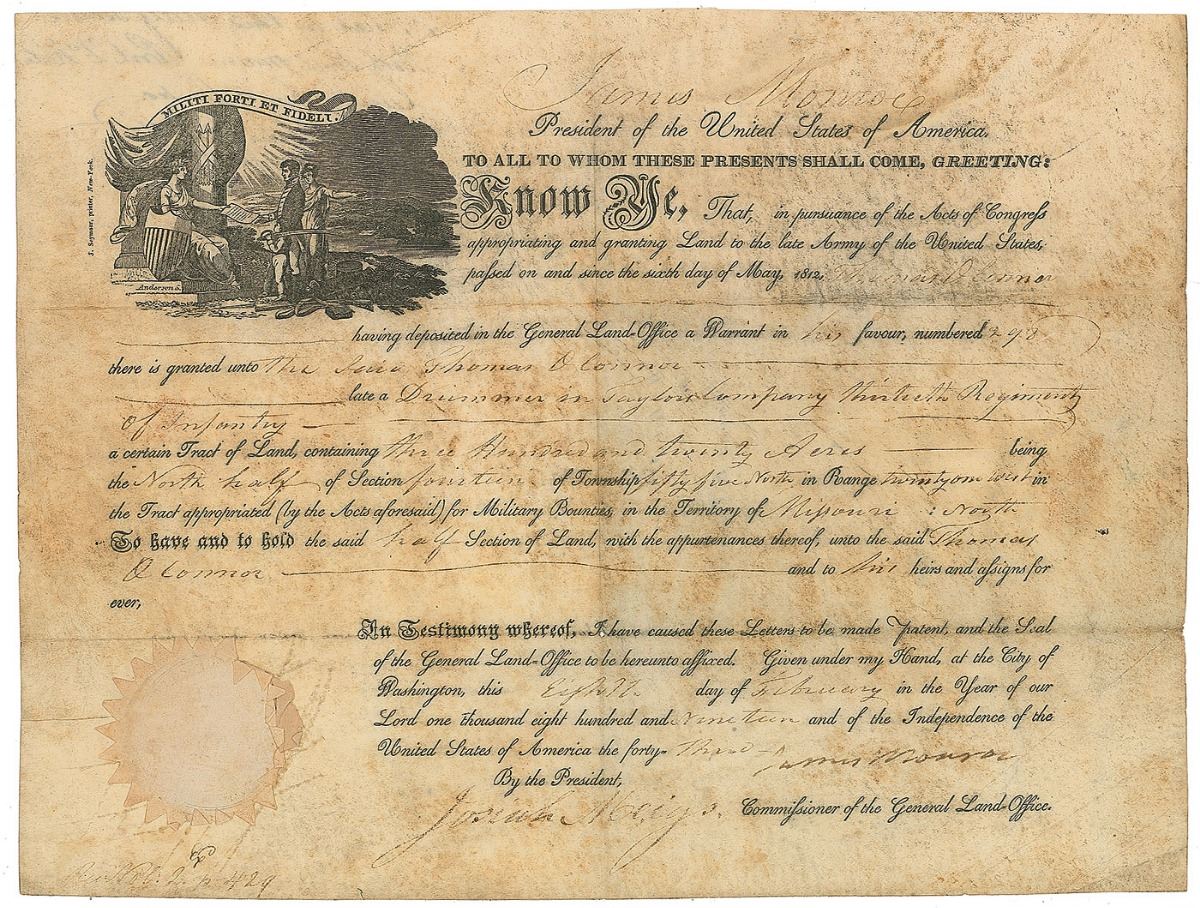 MILITI FORTI ET FIDELI.
J. Seymour, printer, New-York.
Anderson s.
James Monroe
President of the United States of America.
TO ALL TO WHOM THESE PRESENTS SHALL COME, GREETING:
Know Ye, That, in pursuance of the Acts of Congress
appropriating and granting Land to the late Army of the United States,
passed on and since the sixth day of May, 1812, Thomas O Connor
having deposited in the General Land-Office a Warrant in his favour, numbered
there is granted unto the said Thomas O Connor
late a Drummer in Taylors Company thirtieth Regiment
Of Infantry
a certain Tract of Land, containing three Hundred and twenty Acres being
the North half of Section fourteen of Township fifty five North, in Range twenty one west in
the Tract appropriated (by the Acts aforesaid) for Military Bounties, in the Territory of Missouri : North
To have and to hold the said half Section of Land, with the appurtenances thereof, unto the said Thomas
O Connor and to his heirs and assigns for
ever,
In Testimony whereof, I have caused these Letters to be made Patent, and the Seal
of the General Land-Office to be hereunto affixed. Given under my Hand, at the City of
Washington, this Eighth day of February in the Year of our
Lord one thousand eight hundred and Nineteen and of the Independence of the
United States of America the forty-third
James Monroe
By the President,
Josiah Meigs. Commissioner of the General Land-Office.
2 p 429